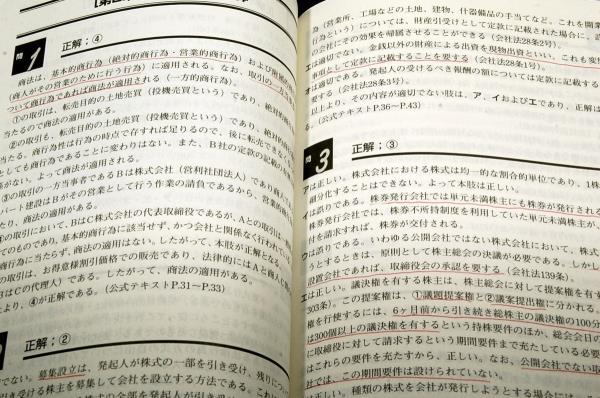 【第四
問 1
正解：④
商法は、基本的商行為（絶対的商行為・営業的商行為）および附属的
（商人がその営業のために行う行為）に適用される。なお、取引の一方
ついて商行為であれば商法が適用される（一方的商行為）。
①の取引は、転売目的の土地売買（投機売買という）であり、絶対的商行
当たるので商法の適用がある。
②の取引も、転売目的の土地売買（投機売買という）であり、絶対的商
当たる。商行為性は行為の時点で存すれば足りるので、後に転売できない
としても商行為であることに変わりはない。また、B社の定款の記載の
係がない。よって商法が適用される。
③の取引の一方当事者であるBは株式会社（営利社団法人）であり商人で
パート建設はBがその営業として行う作業の請負であるから、営業的商
たり、商法の適用がある。
④の取引において、BはC株式会社の代表取締役であるが、Aとの取引は、
てのものであり、基本的商行為に該当せず、かつ会社と関係なく行われて
商行為に当たらず、商法の適用はない。したがって、本肢が正解となる。
の取引は、お得意様割引価格での販売であり、法律的にはAと商人で
はCの代理人）である。したがって、商法の適用がある。
より、④が正解である。（公式テキストP.31～P.33）
正解：②
でない。募集設立は、発起人が株式の一部を引き受け、残りについ
引き受ける株主を募集して会社を設立する方法である。これ
の全部を発起人が引き
為（営業所、工場などの土地、建物、什器備品の手当てなど。これを開業
行為という）については、財産引受けとして定款に記載された場合に、
の会社にその効果を帰属させることができる（会社法28条2号）。
は適切でない。金銭以外の財産による出資を現物出資といい、これも変
事項として定款に記載することを要する（会社法28条1号）。
オは適切である。発起人の受けるべき報酬の額については定款に記載する
要する（会社法28条3号）。
以上より、その内容が適切でない肢は、ア、イおよびエであり、正解は
る。（公式テキストP.36～P.43）
問 3
正解：③
アは正しい。株式会社における株式は均一的な割合的単位であり、1株
細分化することはできない。よって本肢は正しい。
イは誤りである。株券発行会社では単元未満株主にも株券が発行される
株券発行会社では、株券不所持制度を利用していた単元未満株主が、
付を請求すれば、株券が交付される。
ウは誤りである。いわゆる公開会社ではない株式会社において、株式
うとするときは、原則として株主総会の決議が必要である。しかし
設置会社であれば、取締役会の承認を要する（会社法139条）。
エは正しい。議決権を有する株主は、株主総会に対して提案権を有す
303条）。この提案権は、①議題提案権と②議案提出権に分かれる。
権を行使するには、6ヶ月前から引き続き総株主の議決権の100分
は300個以上の議決権を有するという持株要件のほか、総会会日の
に取締役に対して請求するという期間要件まで充たしている必要
はこれらの要件を充たすから、正しい。なお、公開会社でない取
社では、この期間要件は設けられていない。
は正しい。種類の株式を会社が発行しようとする場合には、